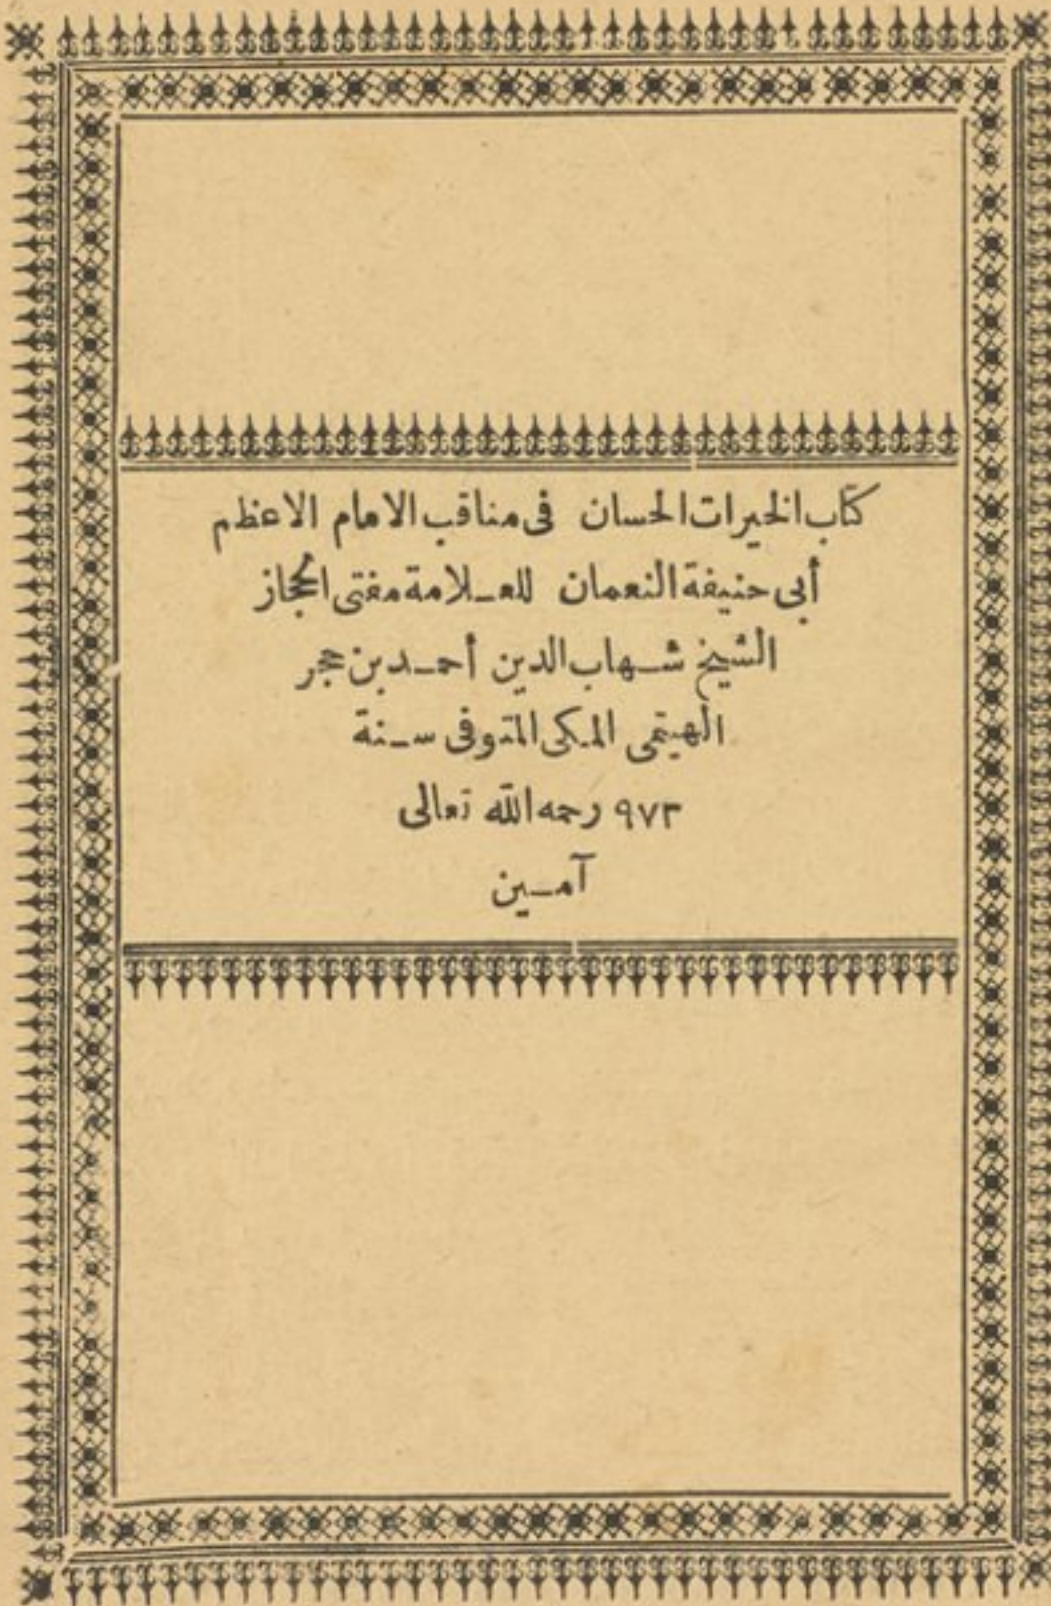 كتاب الخيرات الحسان في مناقب الامام الاعظم
أبى حنيفة النعمان للعـلامة مفتى الحجاز
الشيخ شـهاب الدين أحمـد بن حجر
الهيتمى المكى المتوفى سـنة
٩٧٣ رحمه الله تعالى
آمـين